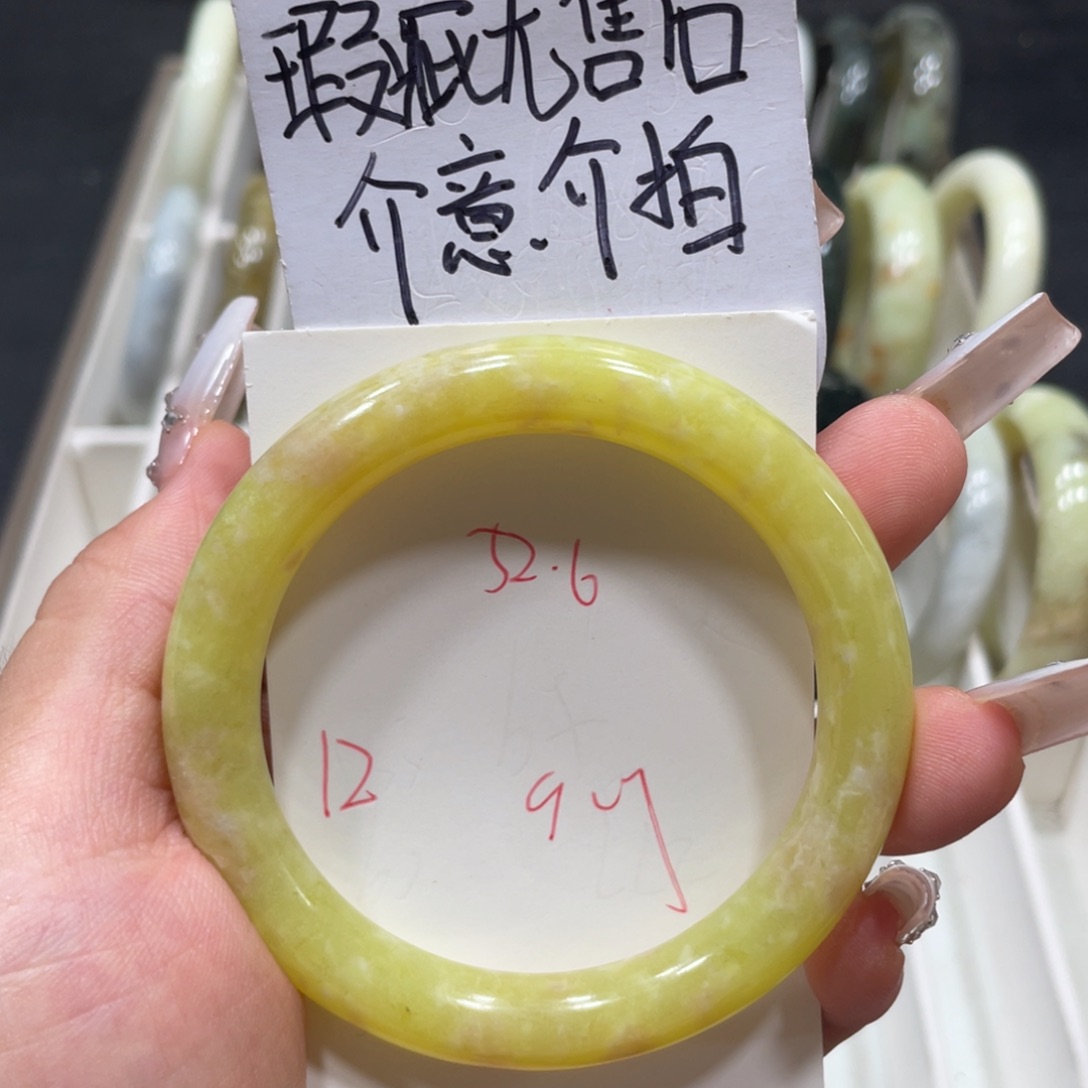 瑕疵无售后
介意.介拍
52.6
12
9